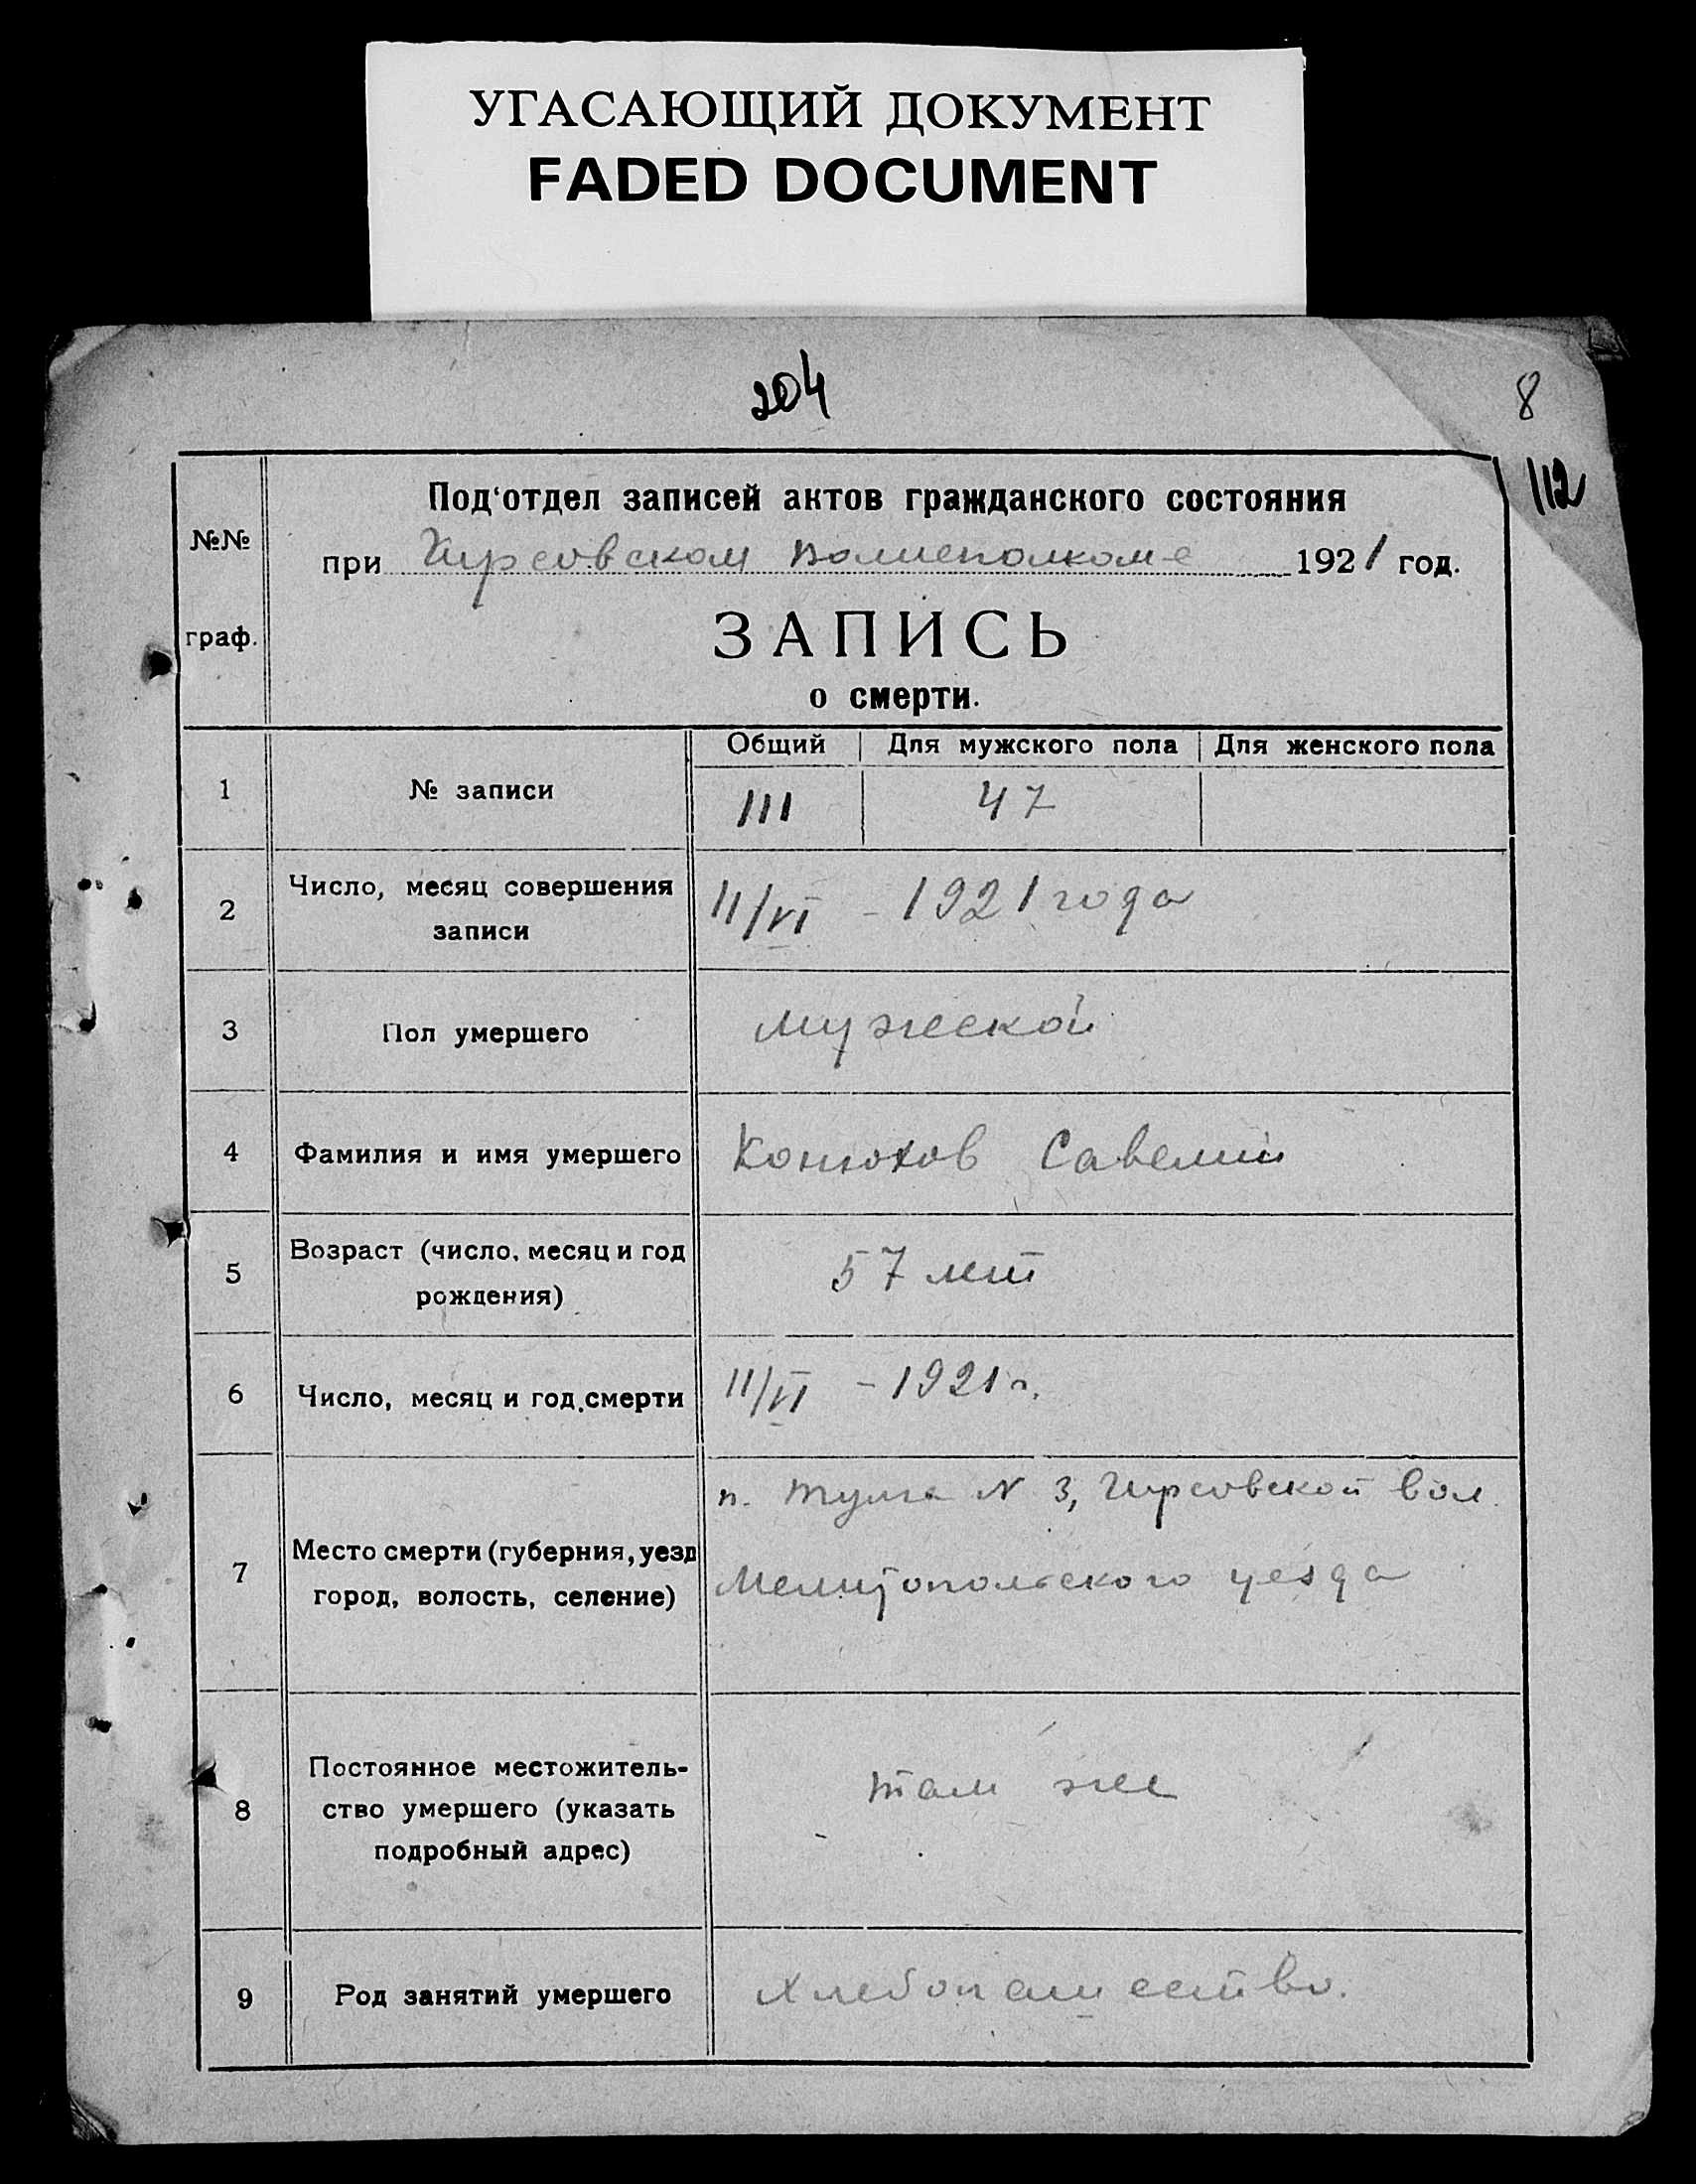 УГАСАЮЩИЙ ДОКУМЕНТ
FADED DOCUMENT
204
8
112
№№
граф.
Под'отдел записей актов гражданского состояния
при Кирсовском волисполкоме 1921 год.
ЗАПИСЬ
о смерти.
Общий Для мужского пола Для женского пола
1 № записи 111 47
2 Число, месяц совершения
записи
11/VI - 1921 года
3 Пол умершего мужской
4 Фамилия и имя умершего Конюхов Савелий
5 Возраст (число, месяц и год
рождения)
57 лет
6 Число, месяц и год смерти 11/VI - 1921 г.
7 Место смерти (губерния, уезд
город, волость, селение)
п. N 3, Кирсовской вол.
Мелитопольского уезда
8 Постоянное местожитель-
ство умершего (указать
подробный адрес)
там же
9 Род занятий умершего Хлебопашество.